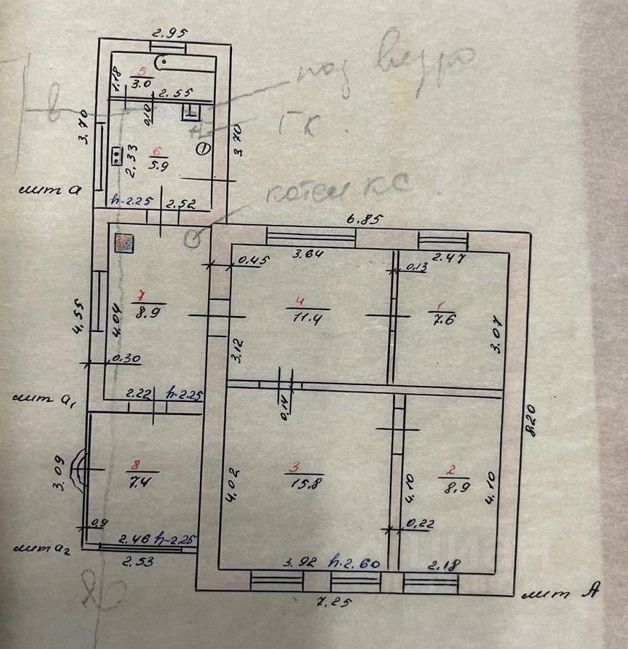 2.95
1.18
5
3.0
2.55
под ведро
в
0.10
ГК.
3.70
2.33
6
5.9
3.70
лит а
h-2.25
2.52
котел КС.
6.85
3.64
2.47
0.45
0.13
7
8.9
4
11.4
1
7.6
4.55
4.04
3.12
3.07
0.30
2.22
h-2.25
лит а₁
0.14
8.20
3.09
8
7.4
4.02
3
15.8
4.10
2
8.9
4.10
0.9
0.22
2.46
h-2.25
лит а₂
2.53
3.92
h-2.60
2.18
7.25
лит А